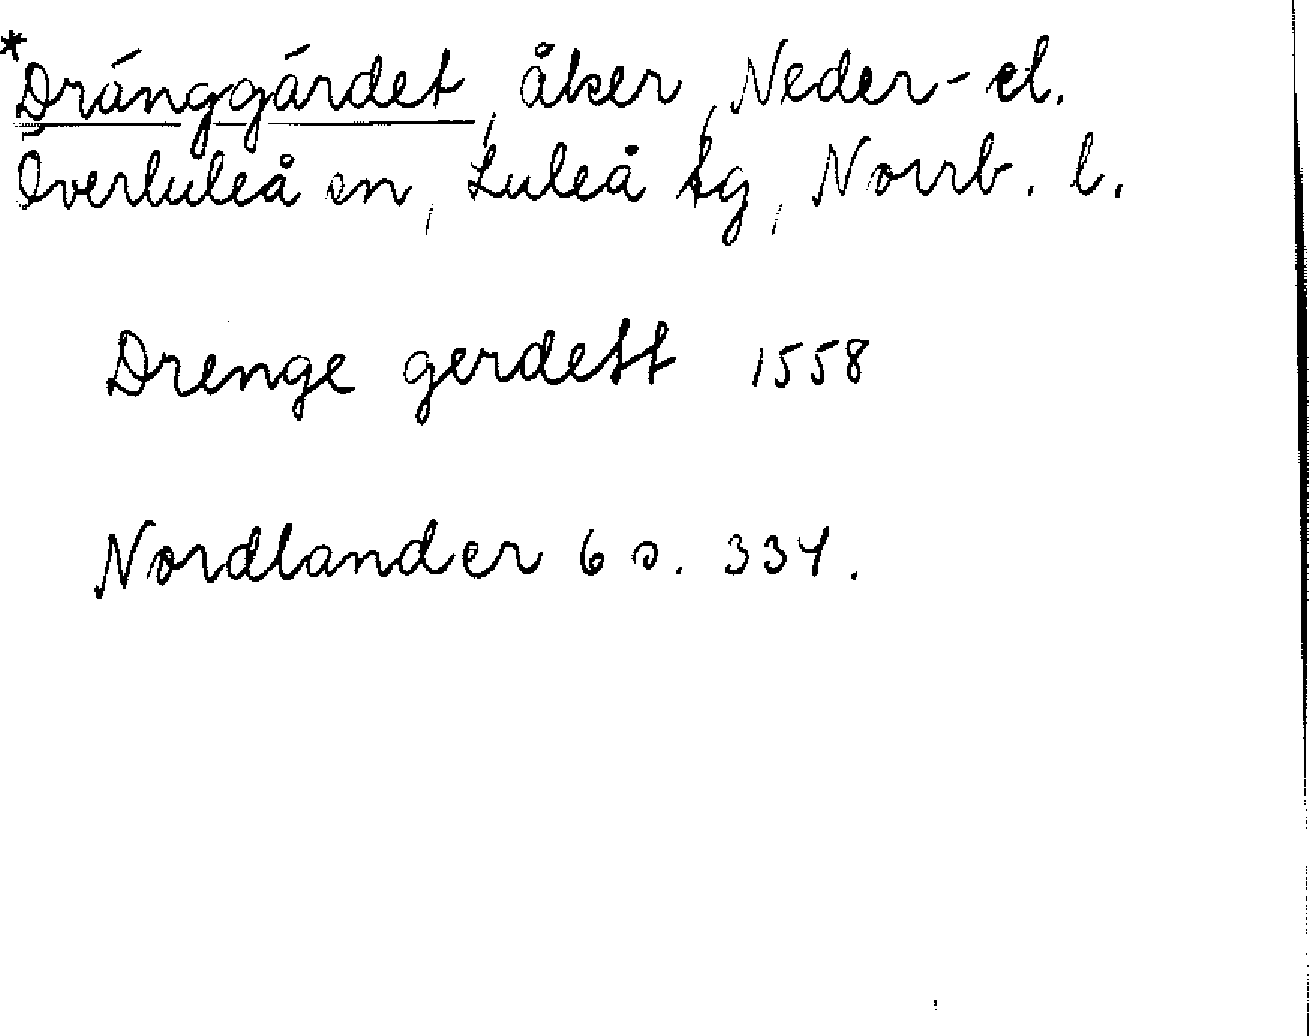 *Dränggärdet, åker, Neder- el.
Överluleå sn, Luleå tg, Norrb. l.
Drenge gerdett 1558
Nordlander 6 s. 334.